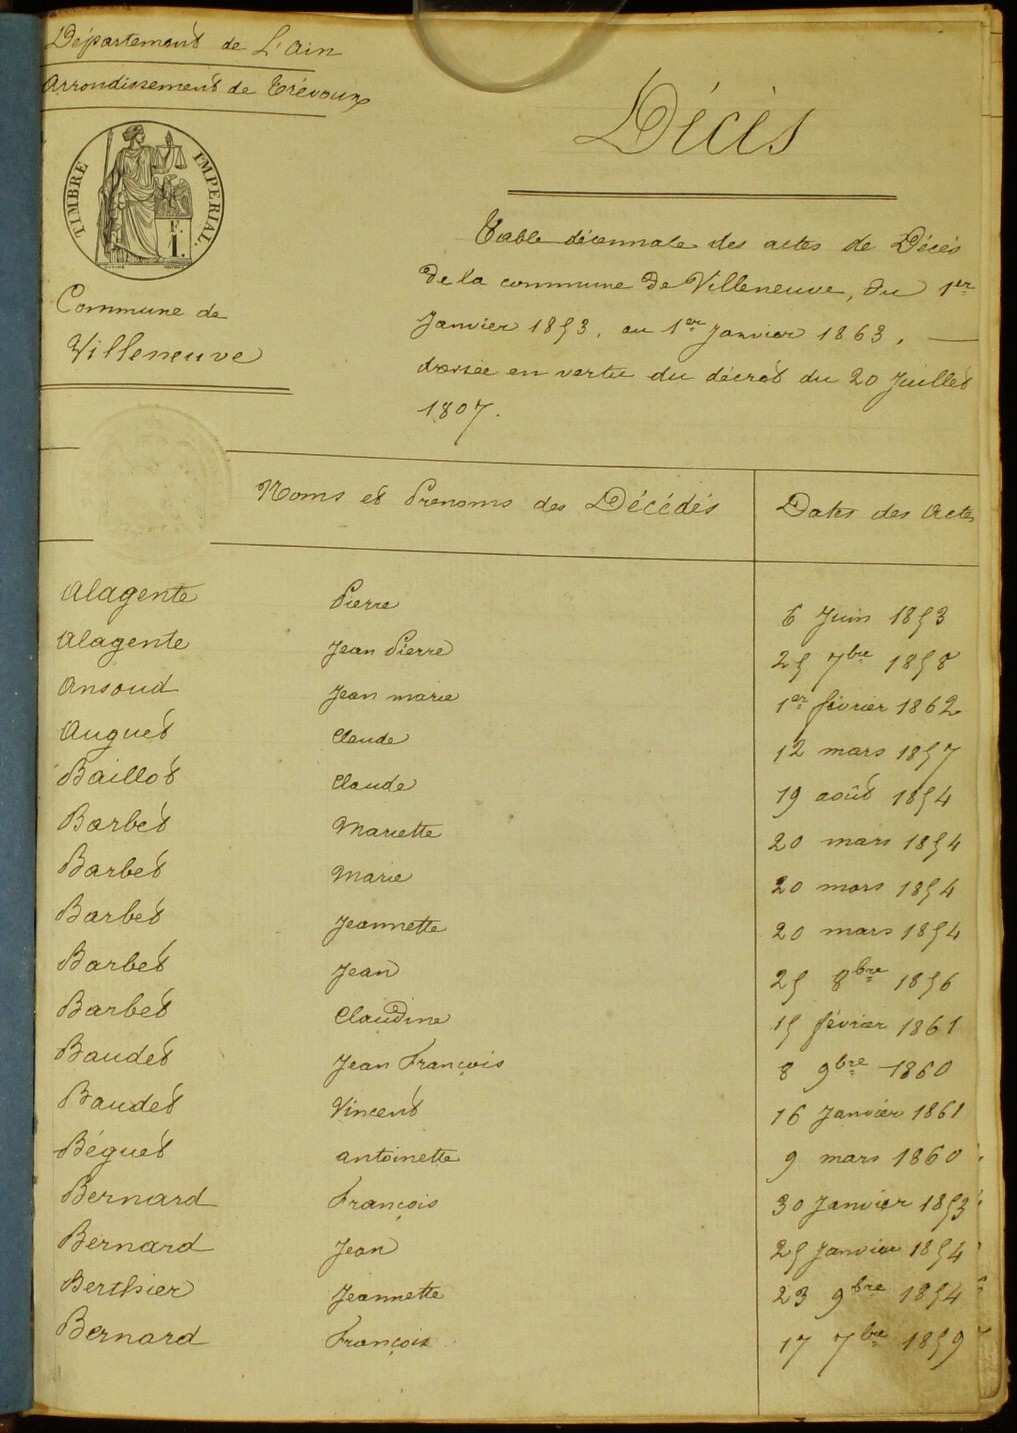 Département de L'Ain
Arrondissement de Trévoux
TIMBRE IMPERIAL.
F.
1.
Commune de
Villeneuve
Décès
Table décennale des actes de Décès
de la commune de Villeneuve, du 1er
Janvier 1853, au 1er Janvier 1863,
dressée en vertu du décret du 20 Juillet
1807.
Noms et Prenoms des Décédés Dates des Actes
Alagente Pierre 6 Juin 1853
Alagente Jean Pierre 25 7bre 1858
Ansoud Jean marie 1er février 1862
Auguet Claude 12 mars 1857
Baillot Claude 19 août 1854
Barbet Mariette 20 mars 1854
Barbet Marie 20 mars 1854
Barbet Jeannette 20 mars 1854
Barbet Jean 25 8bre 1856
Barbet Claudine 15 février 1861
Baudet Jean François 8 9bre 1860
Baudet Vincent 16 Janvier 1861
Béguet antoinette 9 mars 1860
Bernard François 30 Janvier 1853
Bernard Jean 25 Janvier 1854
Berthier Jeannette 23 9bre 1854
Bernard François 17 7bre 1859